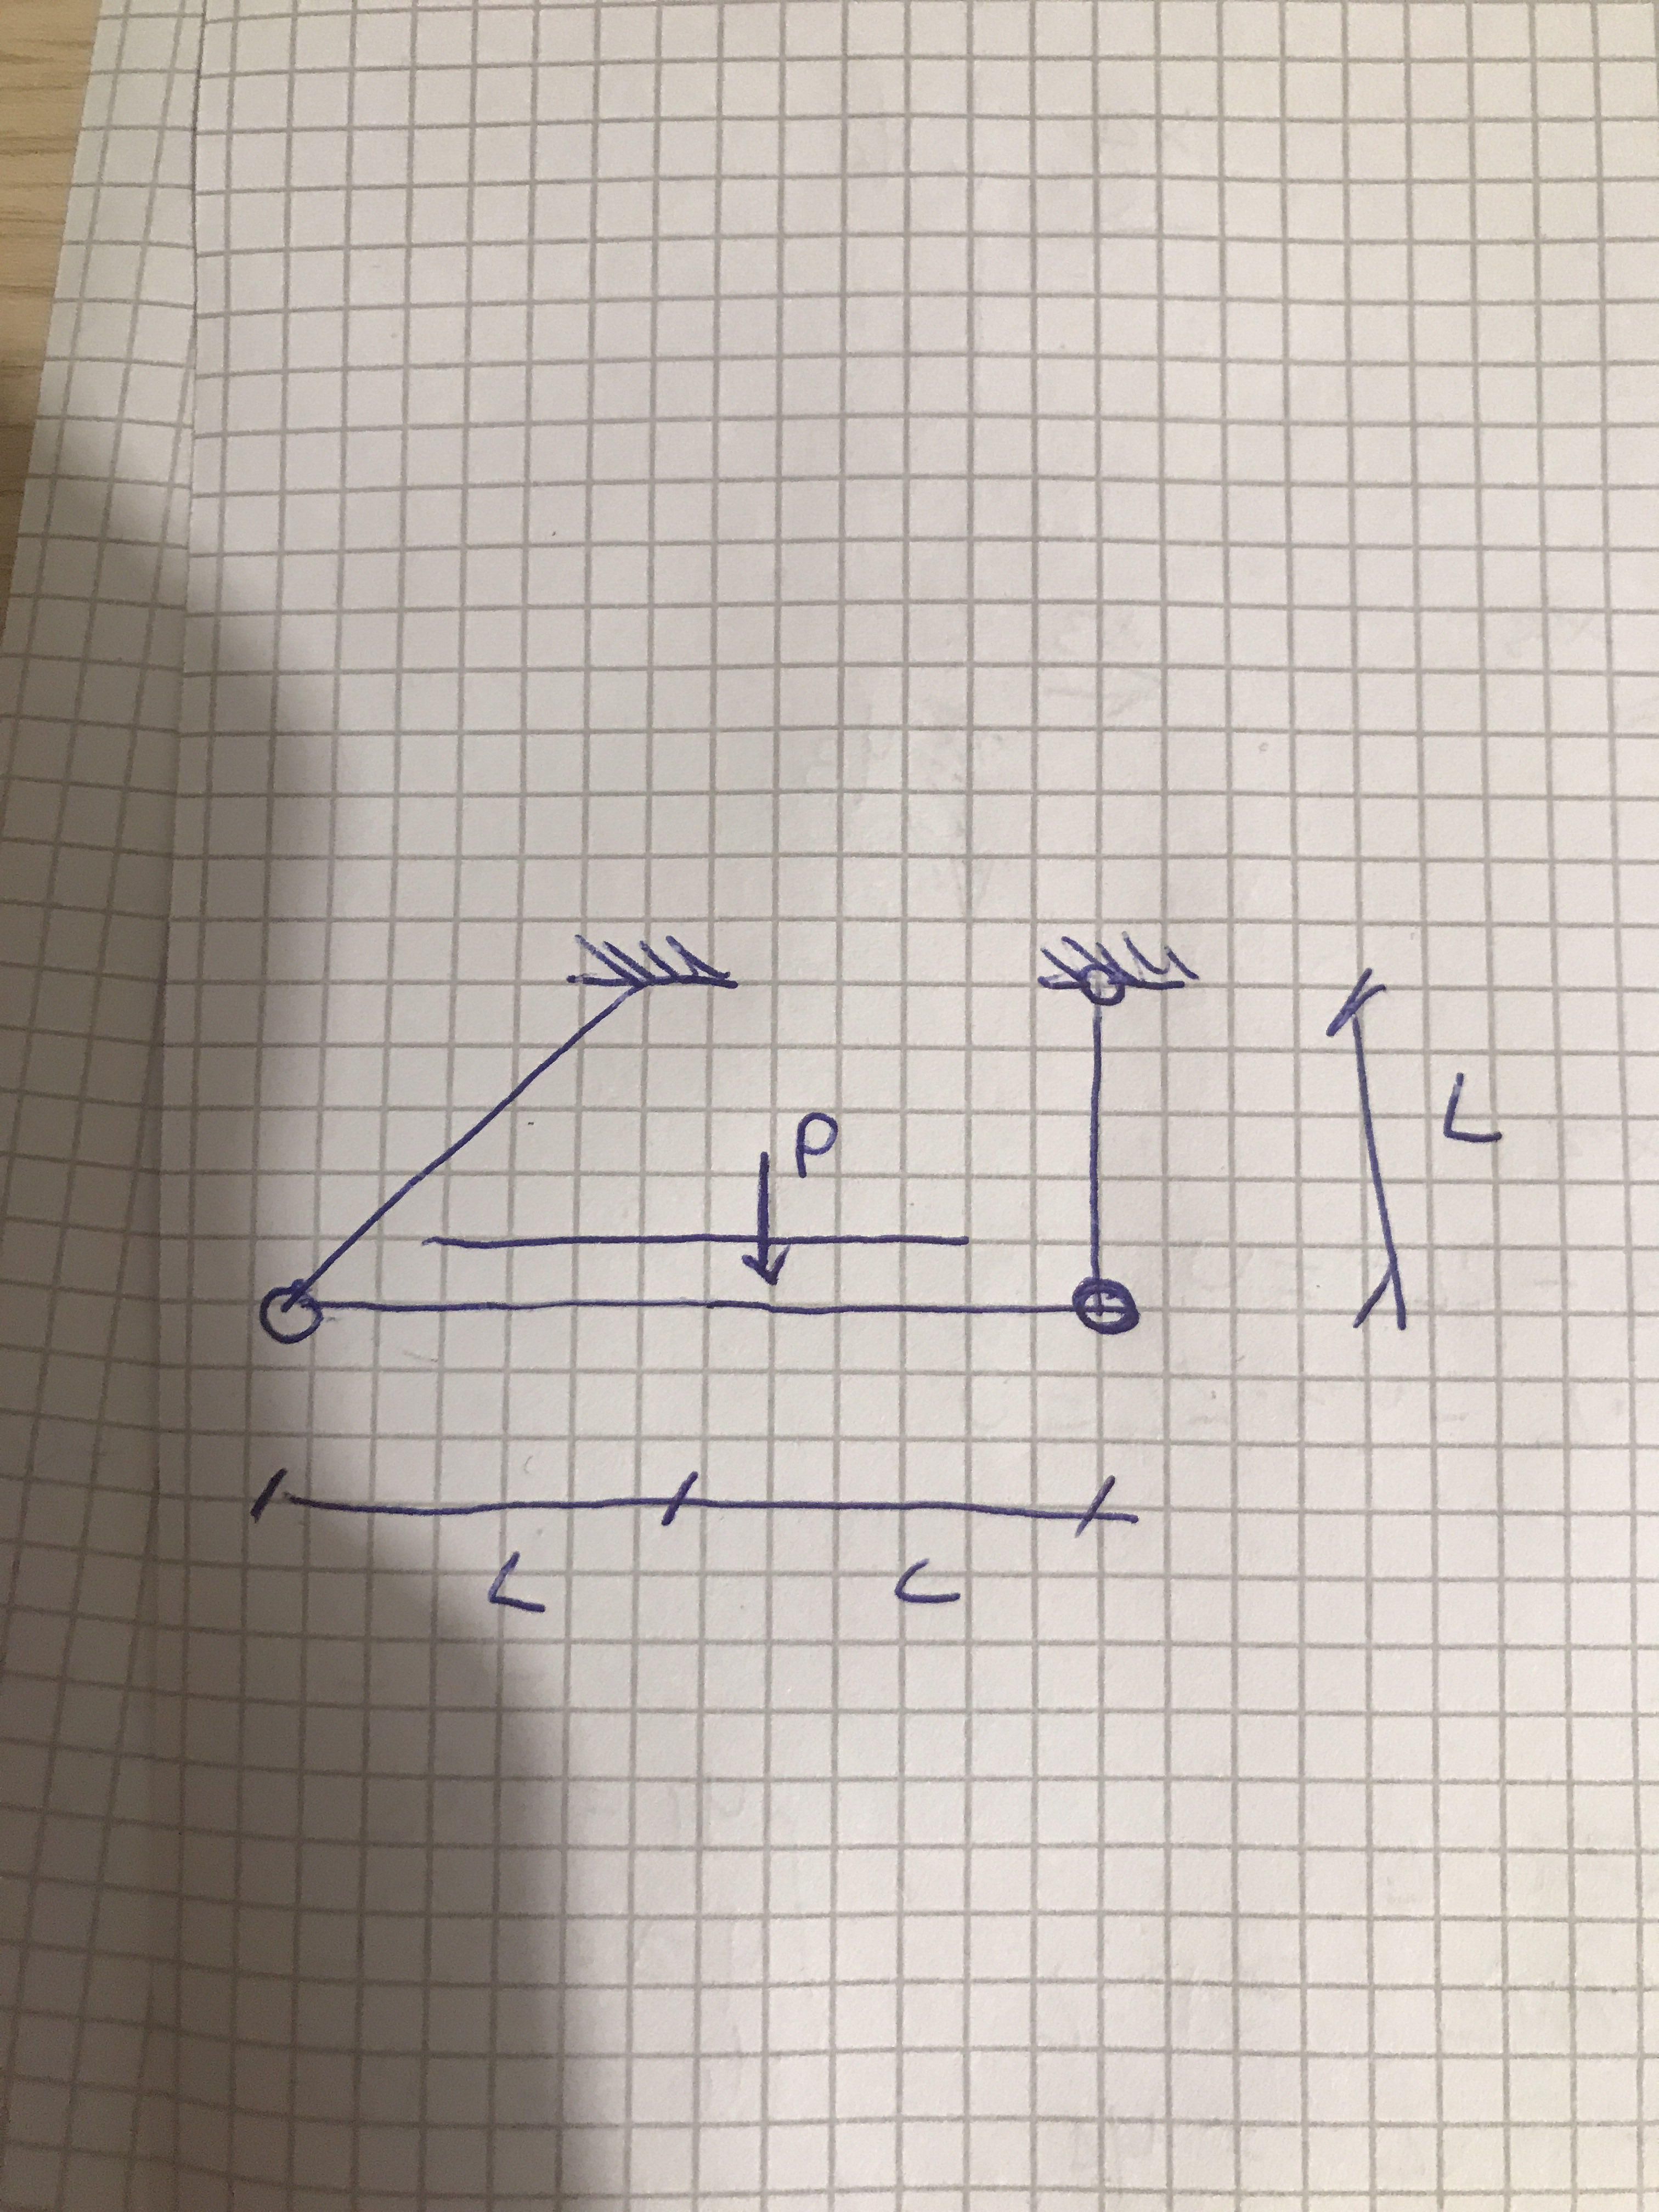 P
L
L L